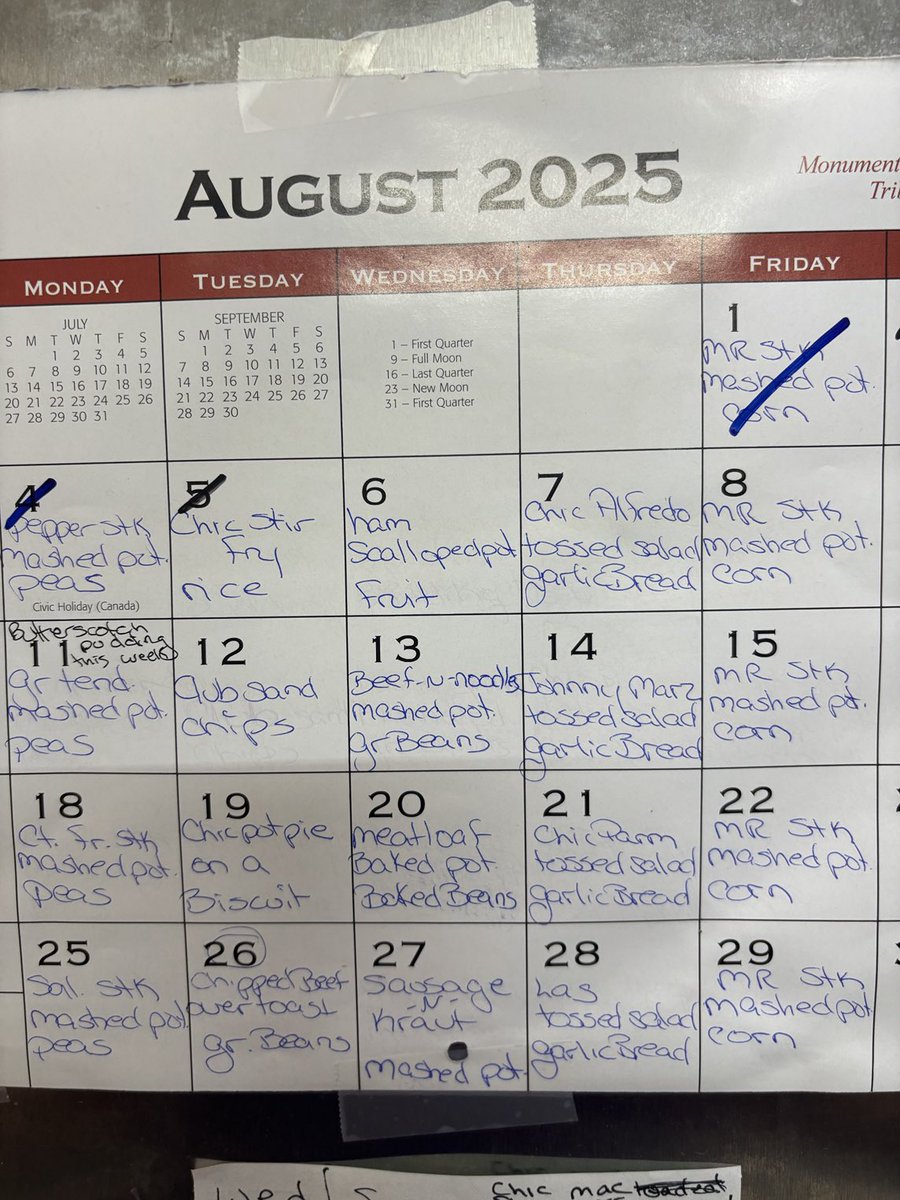 AUGUST 2025
Monument
Tri
MONDAY TUESDAY WEDNESDAY THURSDAY FRIDAY
JULY
S M T W T F S
1 2 3 4 5
6 7 8 9 10 11 12
13 14 15 16 17 18 19
20 21 22 23 24 25 26
27 28 29 30 31
SEPTEMBER
S M T W T F S
1 2 3 4 5 6
7 8 9 10 11 12 13
14 15 16 17 18 19 20
21 22 23 24 25 26 27
28 29 30
1 – First Quarter
9 – Full Moon
16 – Last Quarter
23 – New Moon
31 – First Quarter
1
MR Stk
mashed pot.
corn
4
Pepper Stk
mashed pot.
peas
Civic Holiday (Canada)
5
Chic Stir
Fry
rice
6
ham
Scalloped pot
Fruit
7
Chic Alfredo
tossed salad
garlic Bread
8
MR Stk
mashed pot.
corn
Butterscotch
pudding
this week
11
gr tend.
mashed pot.
peas
12
Club Sand
Chips
13
Beef-N-noodles
mashed pot.
gr Beans
14
Johnny Marz
tossed salad
garlic Bread
15
MR Stk
mashed pot.
corn
18
Ct. Fr. Stk
mashed pot.
peas
19
Chic pot pie
on a
Biscuit
20
meatloaf
Baked pot.
Baked Beans
21
Chic Parm
tossed salad
garlic Bread
22
MR Stk
mashed pot.
corn
25
Sal. Stk
mashed pot.
peas
26
Chipped Beef
over toast
gr. Beans
27
Sausage
-N-
Kraut
mashed pot.
28
Las
tossed salad
garlic Bread
29
MR Stk
mashed pot
corn
Wed
Chic mac